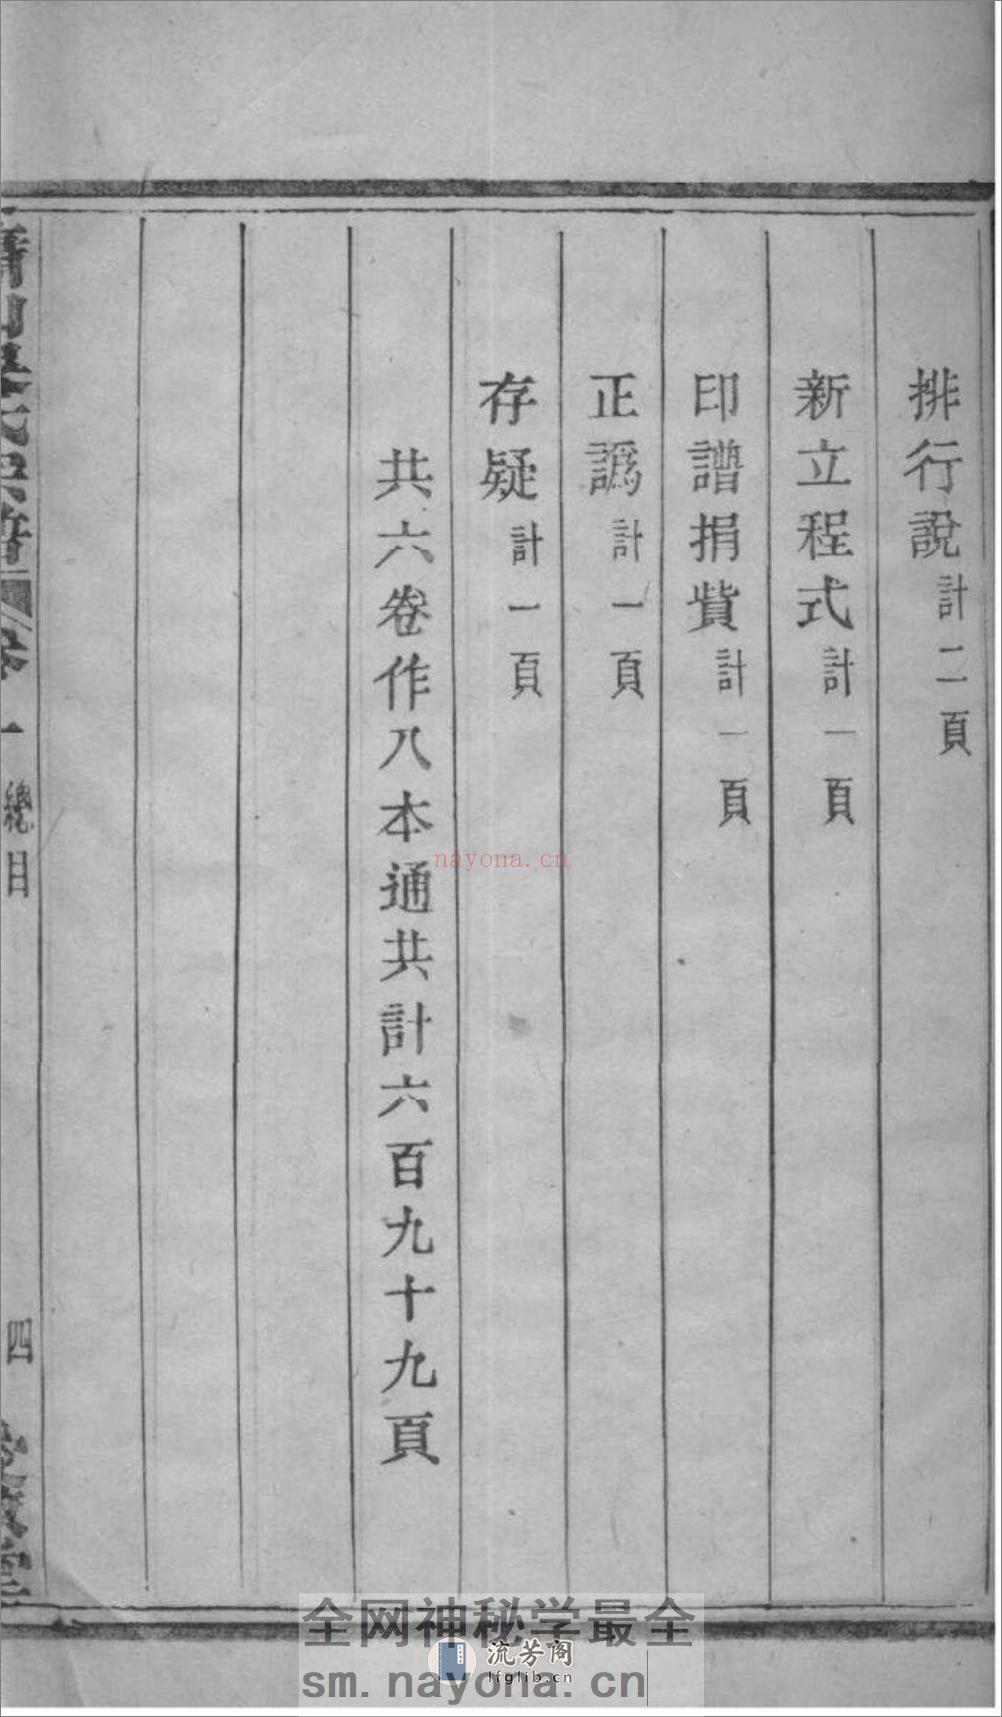 排行說計二頁
新立程式計一頁
印譜捐貲計一頁
正譌計一頁
存疑計一頁
共六卷作八本通共計六百九十九頁
總目
四
nayona.cn
全网神秘学最全
流芳阁
lfglib.cn
sm.nayona.cn